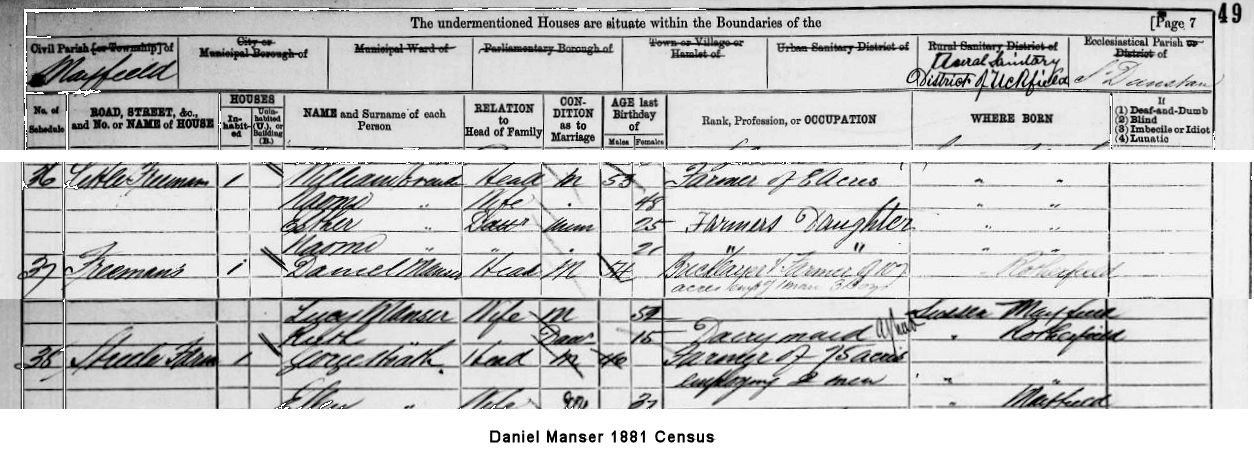 The undermentioned Houses are situate within the Boundaries of the
[Page 7
49
Civil Parish [or Township] of
Mayfield
City or Municipal Borough of
Municipal Ward of
Parliamentary Borough of
Town or Village or Hamlet of
Urban Sanitary District of
Rural Sanitary District of
Rural Sanitary District of Uckfield
Ecclesiastical Parish or District of
St Dunstan
No. of Schedule
ROAD, STREET, &c., and No. or NAME of HOUSE
HOUSES
In-habit-ed
Unin-habited (U.), or Building (B.)
NAME and Surname of each Person
RELATION to Head of Family
CON-DITION as to Marriage
AGE last Birthday of
Males
Females
Rank, Profession, or OCCUPATION
WHERE BORN
If
(1) Deaf-and-Dumb
(2) Blind
(3) Imbecile or Idiot
(4) Lunatic
36 Little Freemans 1 William Head M 53 Farmer of 8 Acres " "
Naomi " Wife " 48 " "
Esther " Daur Unm 25 Farmers Daughter " "
Naomi " " " 21 " " " "
37 Freemans 1 Daniel Manser Head M 54 Farmer of " Rotherfield
acres
Lucy Manser Wife M 52 Sussex Mayfield
Ruth Daur 15 Dairymaid " Rotherfield
38 Steele Farm 1 George Heath Head M Farmer of 75 acres
employing 2 men " "
Ellen " Wife 37 " Mayfield
Daniel Manser 1881 Census